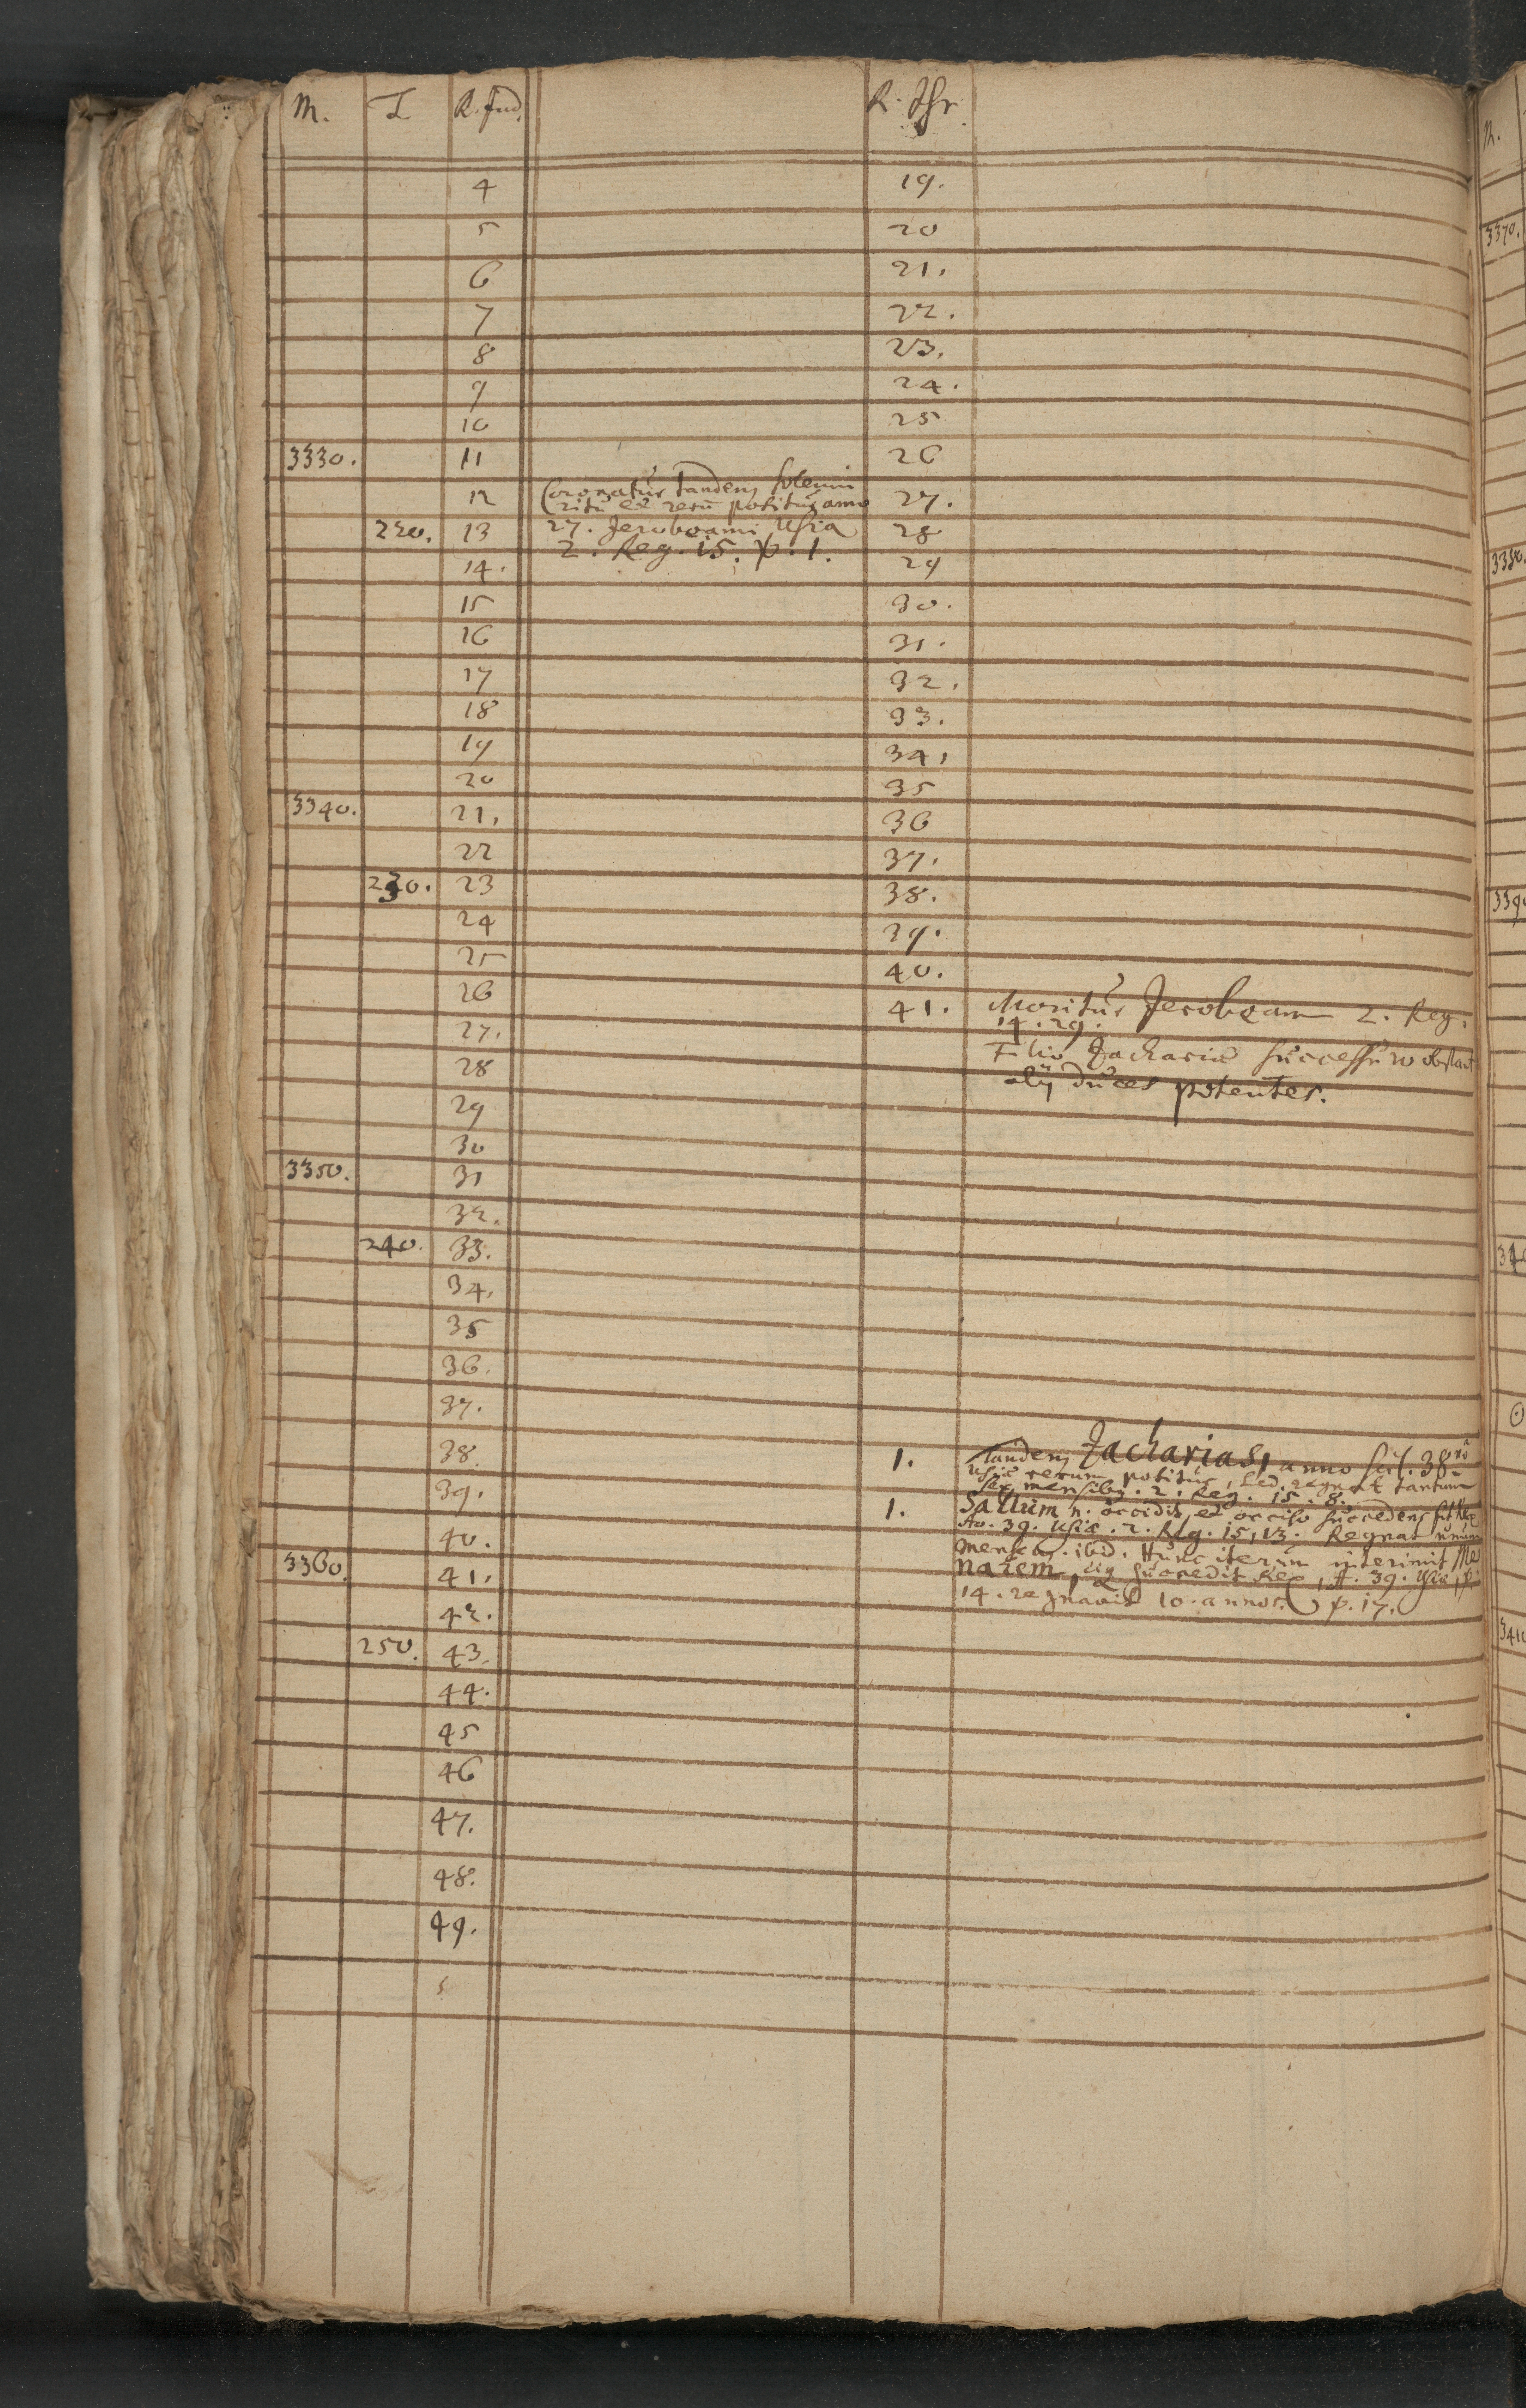 M. T R. Jud. R. Isr.
4 19.
5 20
6 21.
7 22.
8 23.
9 24.
10 25
3330. 11 26
12 Coronatur tandem solenni 27.
ritu et rerū potitur anno
220. 13 27. Jeroboami Usia 28
2. Reg. 15. ℣. 1.
14. 29
15 30.
16 31.
17 32.
18 33.
19 34,
20 35
3340. 21, 36
22 37.
230. 23 38.
24 39.
25 40.
26 41. Moritur Jeroboam 2. Reg.
14. 29.
27.
Filio Zachariæ successuro obstant
28
alij duces potentes.
29
30
3350. 31
32.
240. 33.
34,
35
36.
37.
38. 1. Tandem Zacharias, anno scil. 38vo
Usiæ rerum potitur, sed regnat tantum
sex mensibq. 2. Reg. 15. 8.
39. 1. Sallum n. occidit, et occiso succedens fit Rex
Ao. 39. Usiæ. 2. Reg. 15, 13. Regnat unum
40.
mensem. ibid. Hunc iterum interimit Me
3360. 41. nahem, succedit Rex, A. 39. Usiæ,
14. regnavit 10. annos. ℣. 17.
42.
250. 43.
44.
45
46
47.
48.
49.
M.
3370.
3380.
339
34
3410